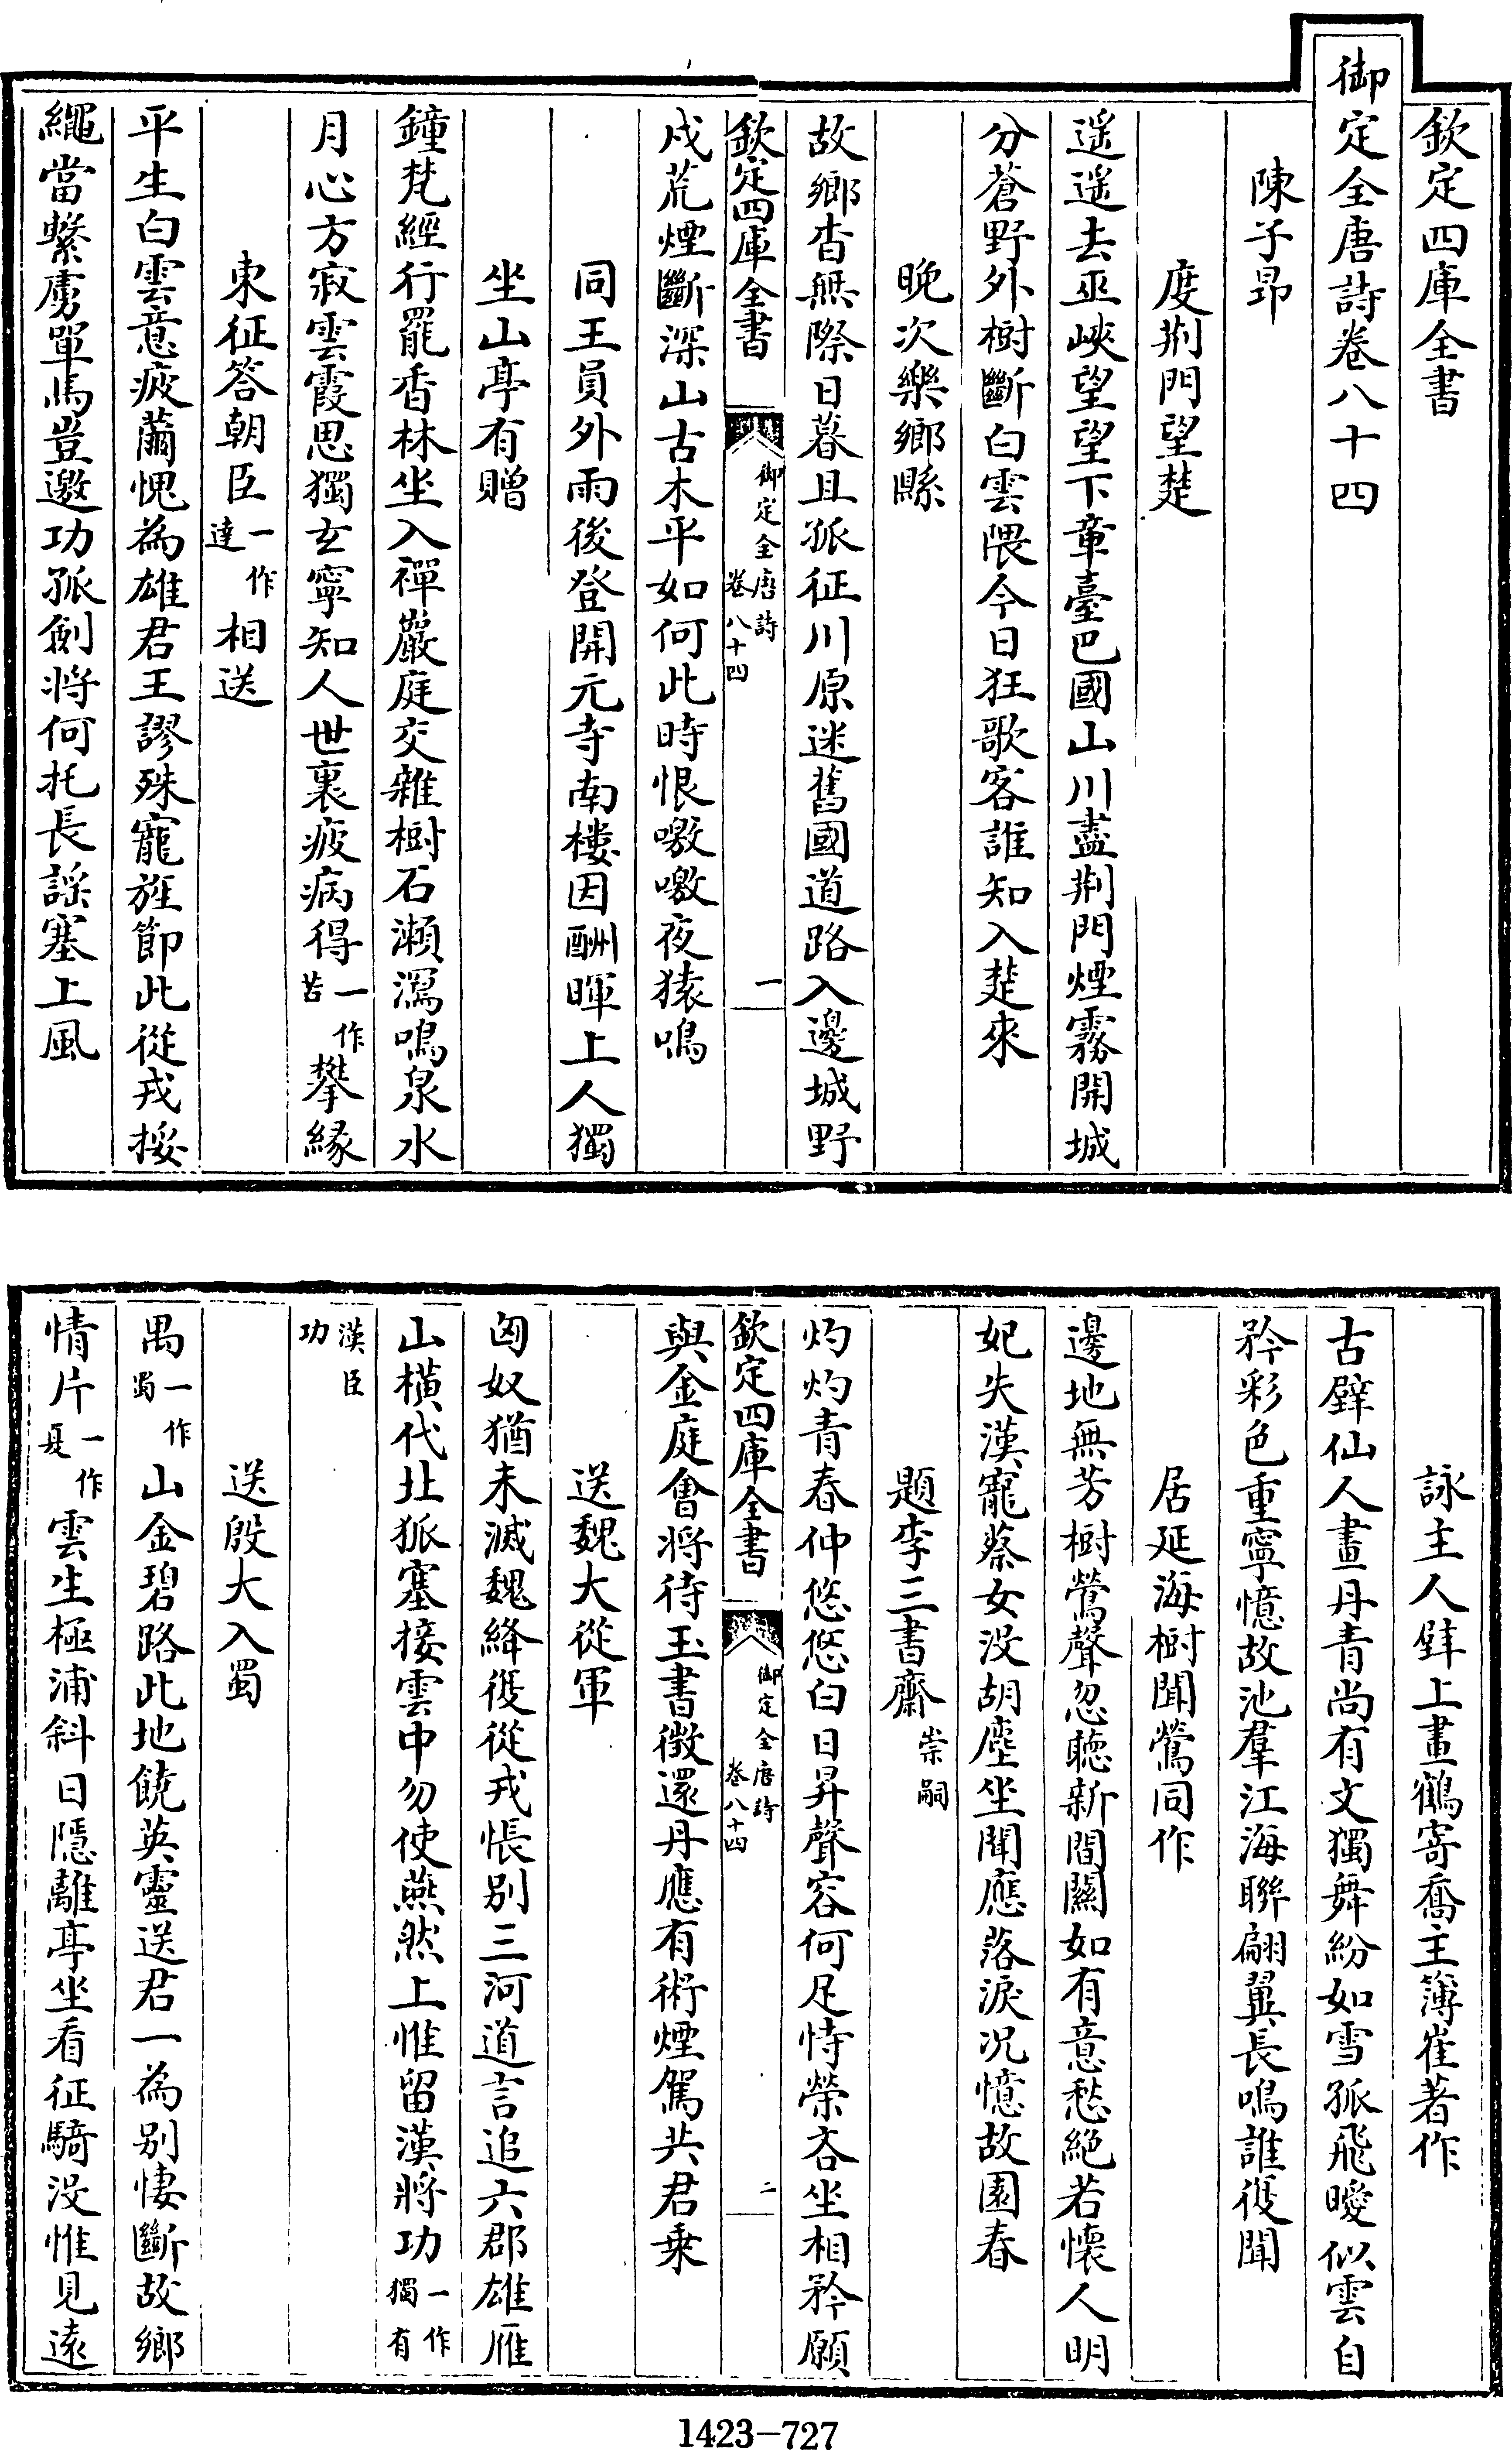 欽定四庫全書
御定全唐詩卷八十四
陳子昂
度荆門望楚
遥遥去巫峽望望下章臺巴國山川盡荆門煙霧開城
分蒼野外樹斷白雲隈今日狂歌客誰知入楚來
晚次樂鄉縣
故鄉杳無際日暮且孤征川原迷舊國道路入邊城野
欽定四庫全書
御定全唐詩
卷八十四
一
戍荒煙斷深山古木平如何此時恨噭噭夜猿鳴
同王員外雨後登開元寺南樓因酬暉上人獨
坐山亭有贈
鐘梵經行罷香林坐入禪巖庭交雜樹石瀨瀉鳴泉水
月心方寂雲霞思獨玄寧知人世裏疲病得一作苦攀緣
東征答朝臣一作達相送
平生白雲意疲薾愧為雄君王謬殊寵旌節此從戎挼
繩當繫虜單馬豈邀功孤劍將何托長謡塞上風
詠主人壁上畫鶴寄喬主簿崔著作
古壁仙人畫丹青尚有文獨舞紛如雪孤飛曖似雲自
矜彩色重寧憶故池羣江海聯翩翼長鳴誰復聞
居延海樹聞鶯同作
邊地無芳樹鶯聲忽聽新間關如有意愁絶若懷人明
妃失漢寵蔡女没胡塵坐聞應落淚况憶故園春
題李三書齋崇嗣
灼灼青春仲悠悠白日昇聲容何足恃榮吝坐相矜願
欽定四庫全書
御定全唐詩
卷八十四
二
與金庭會將待玉書徵還丹應有術煙駕共君乗
送魏大從軍
匈奴猶未滅魏絳復從戎悵别三河道言追六郡雄雁
山横代北狐塞接雲中勿使燕然上惟留漢將功一作獨有
漢臣功
送殷大入蜀
禺一作蜀山金碧路此地饒英靈送君一為别悽斷故鄉
情片一作夏雲生極浦斜日隱離亭坐看征騎没惟見遠
1423-727